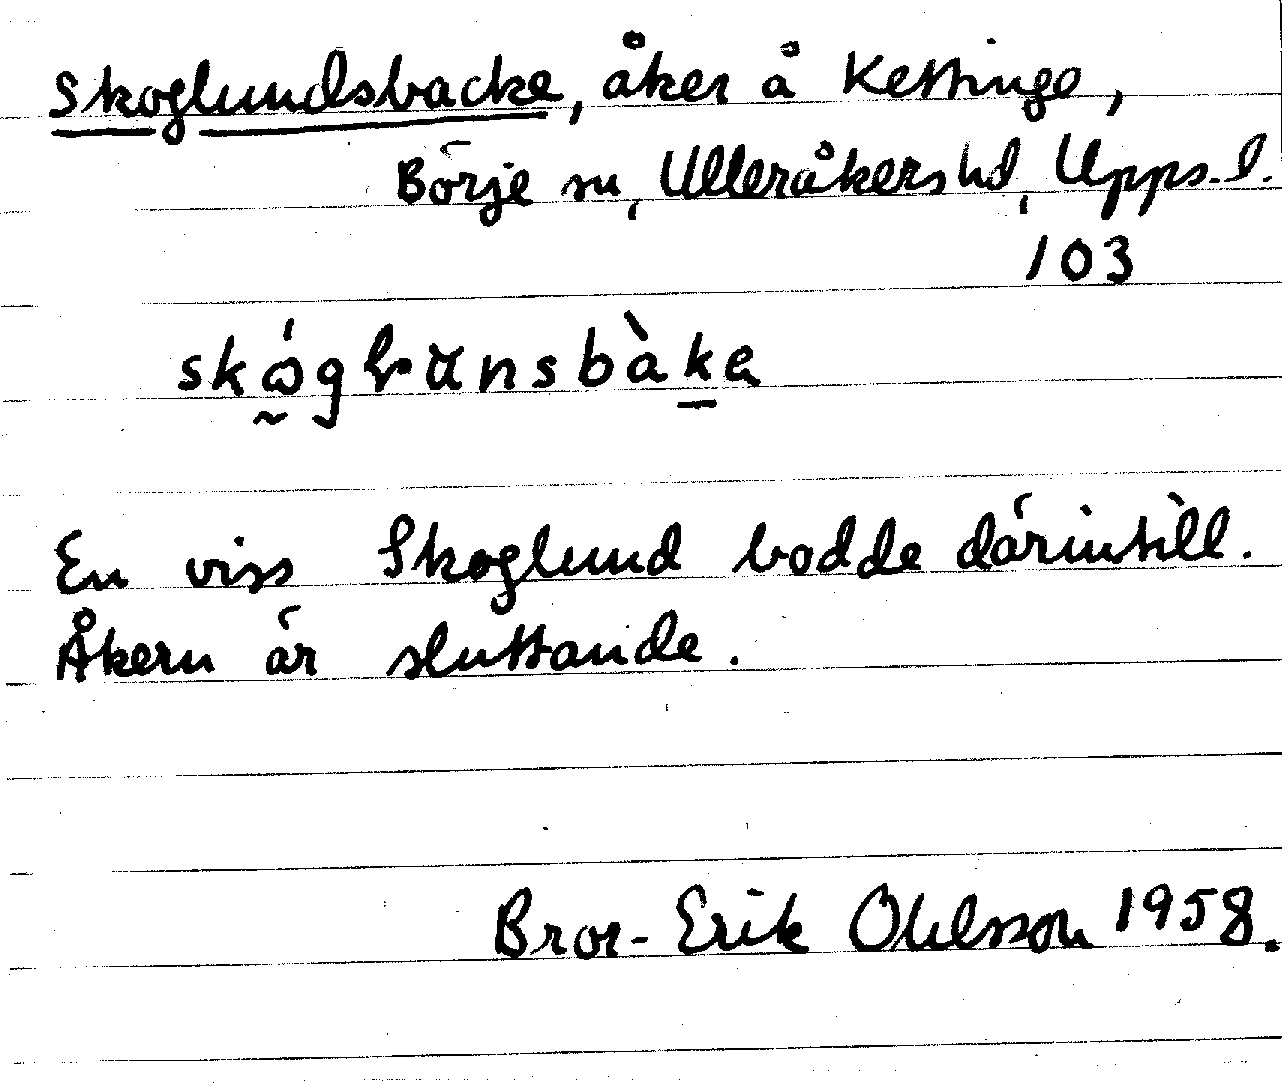 Skoglundsbacke, åker å Kettinge,
Börje sn, Ulleråkers hd, Upps. l.
103
En viss Skoglund bodde därintill.
Åkern är sluttande.
Bror-Erik Ohlsson 1958.